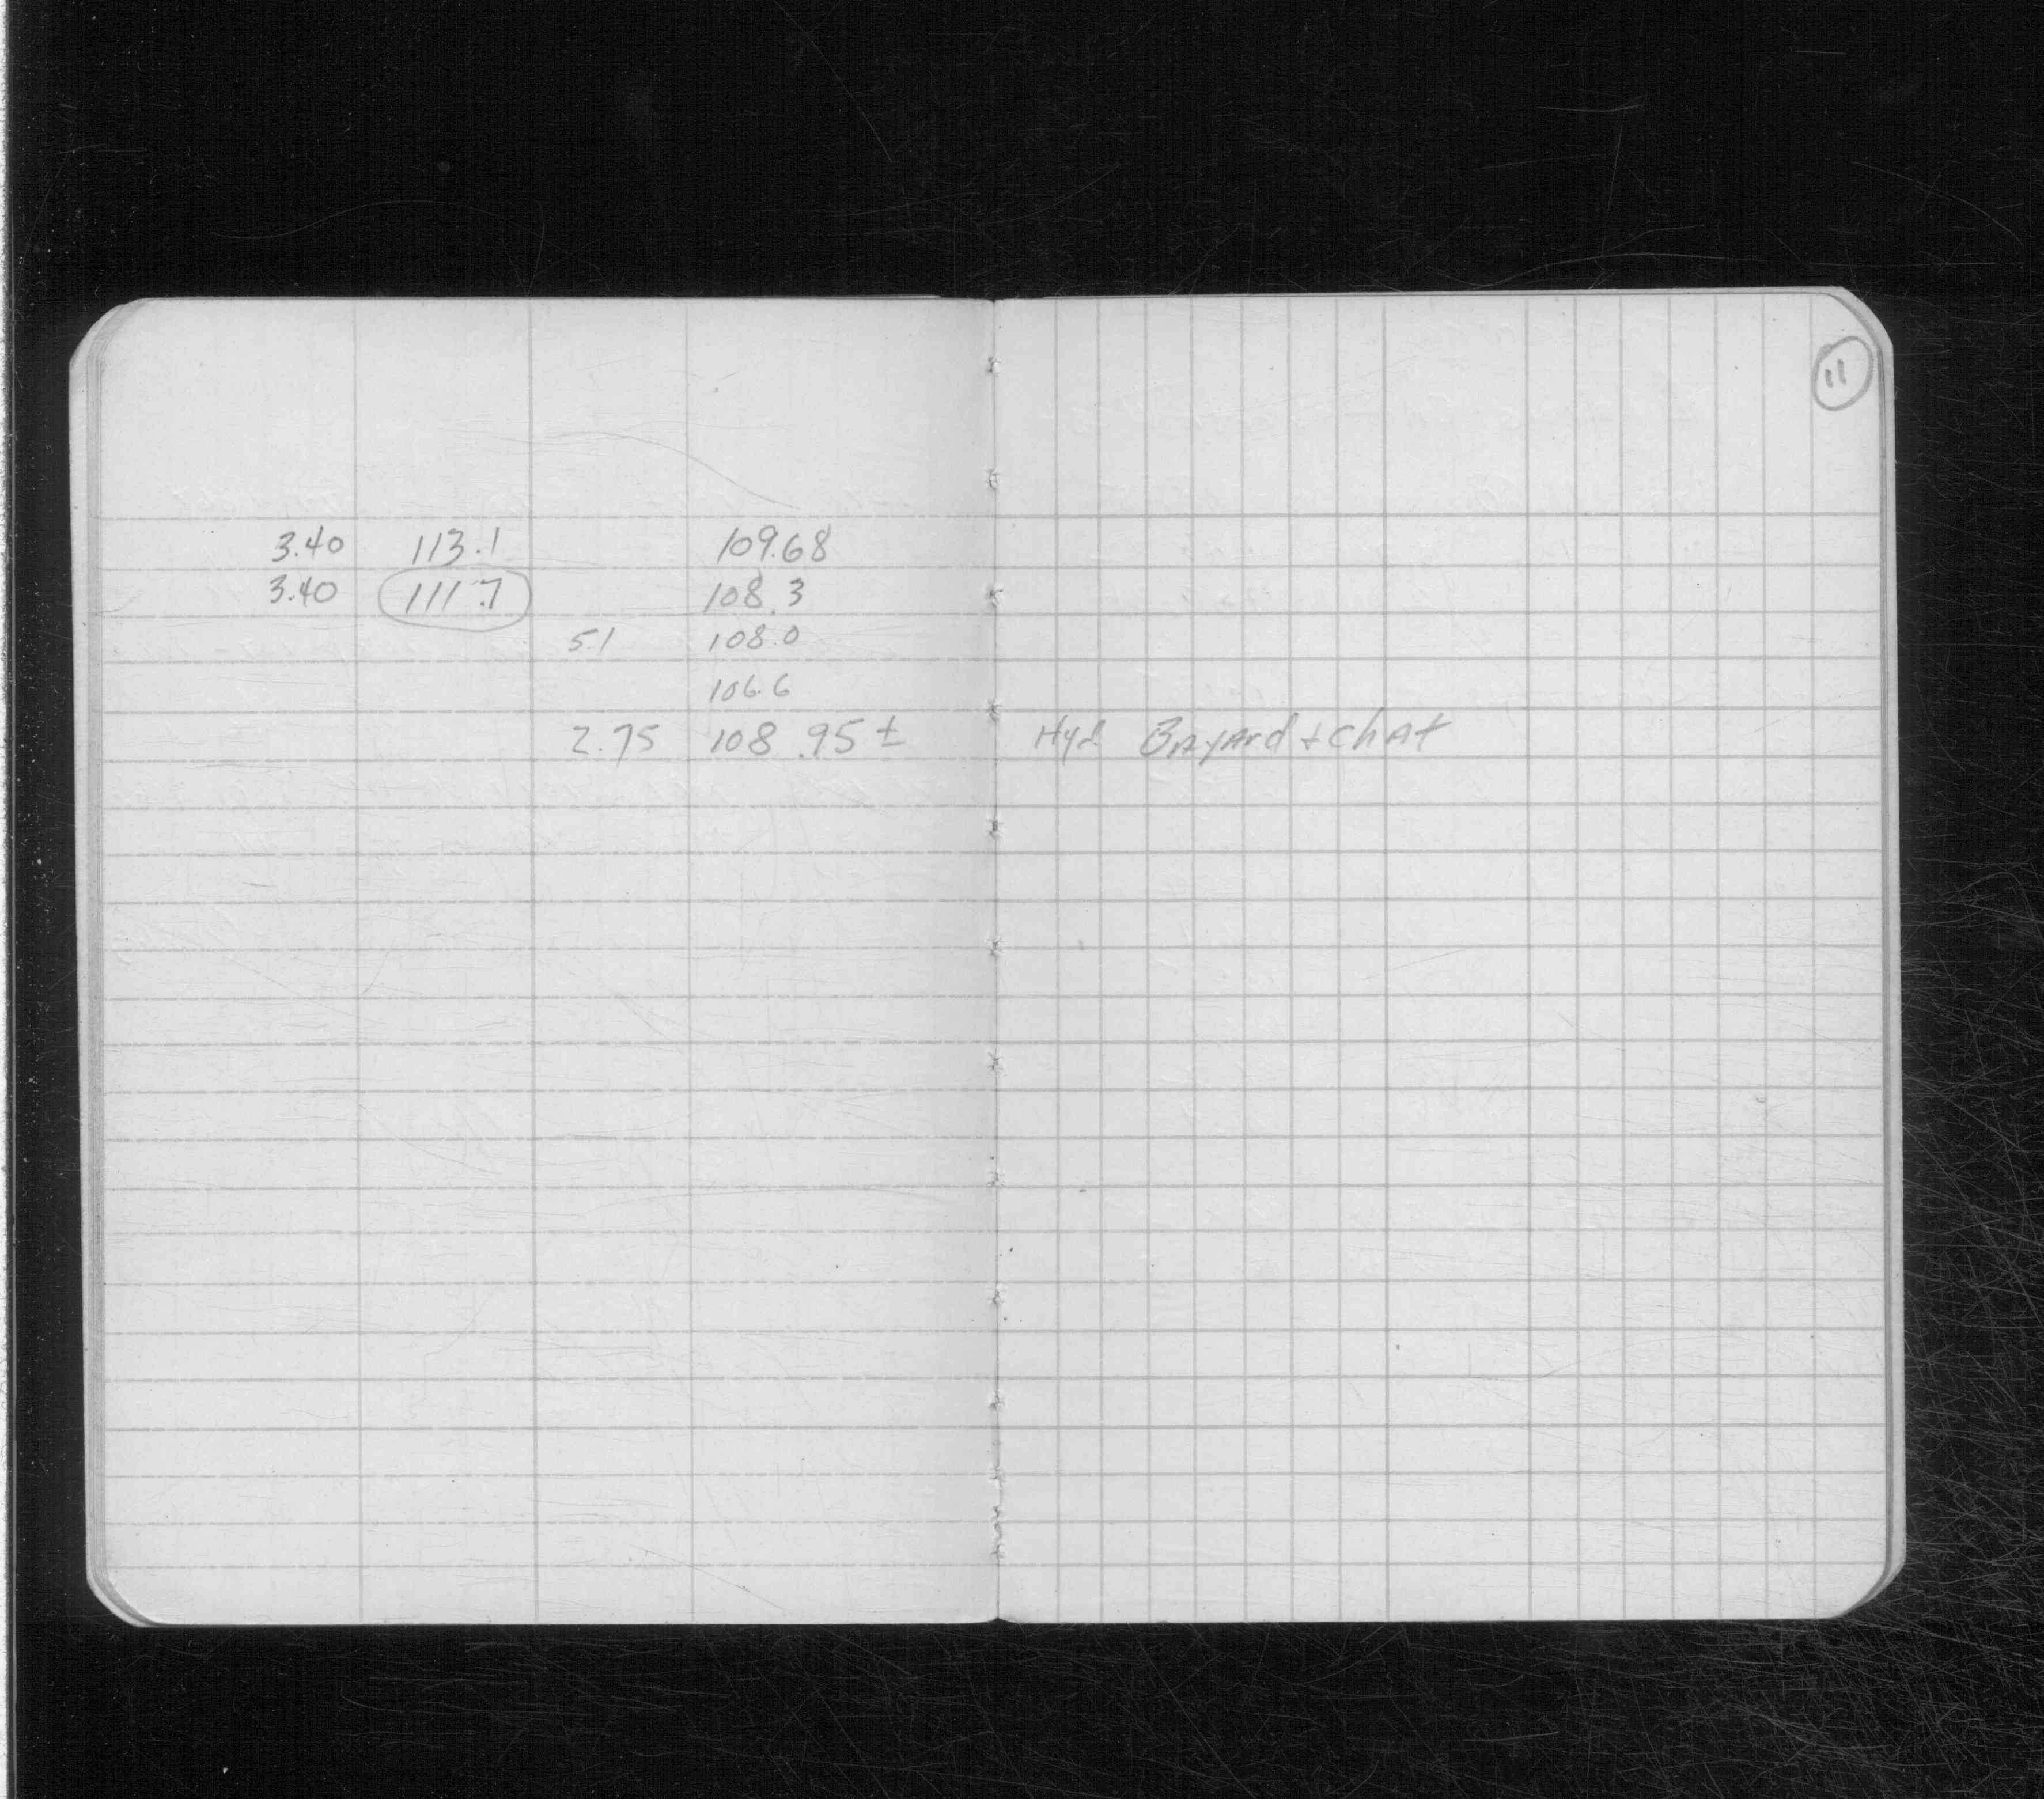 11
3.40 113.1 109.68
3.40 111.7 108.3
5.1 108.0
106.6
2.75 108.95 ± Hyd Bayard + Chat